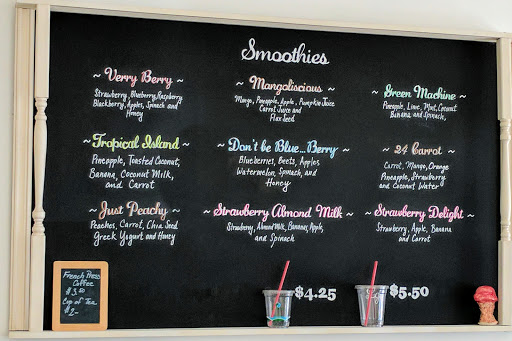 Smoothies
~ Verry Berry ~
Strawberry, Blueberry, Raspberry
Blackberry, Apples, Spinach and
Honey
~ Mangoliscious ~
Mango, Pineapple, Apple, Pumpkin Juice
Carrot Juice and
Flax Seed
~ Green Machine ~
Pineapple, Lime, Mint, Coconut
Banana and Spinach,
~ Tropical Island ~
Pineapple, Toasted Coconut,
Banana, Coconut Milk,
and Carrot
~ Don't be Blue...Berry ~
Blueberries, Beets, Apples
Watermelon, Spinach, and
Honey
~ 24 Carrot ~
Carrot, Mango, Orange
Pineapple, Strawberry
and Coconut Water
~ Just Peachy ~
Peaches, Carrot, Chia Seed
Greek Yogurt and Honey
~ Strawberry Almond Milk ~
Strawberry, Almond Milk, Bananas, Apple,
and Spinach
~ Strawberry Delight ~
Strawberry, Apple, Banana
and Carrot
French Press
Coffee
$3.50
Cup of Tea
$2-
$4.25
$5.50